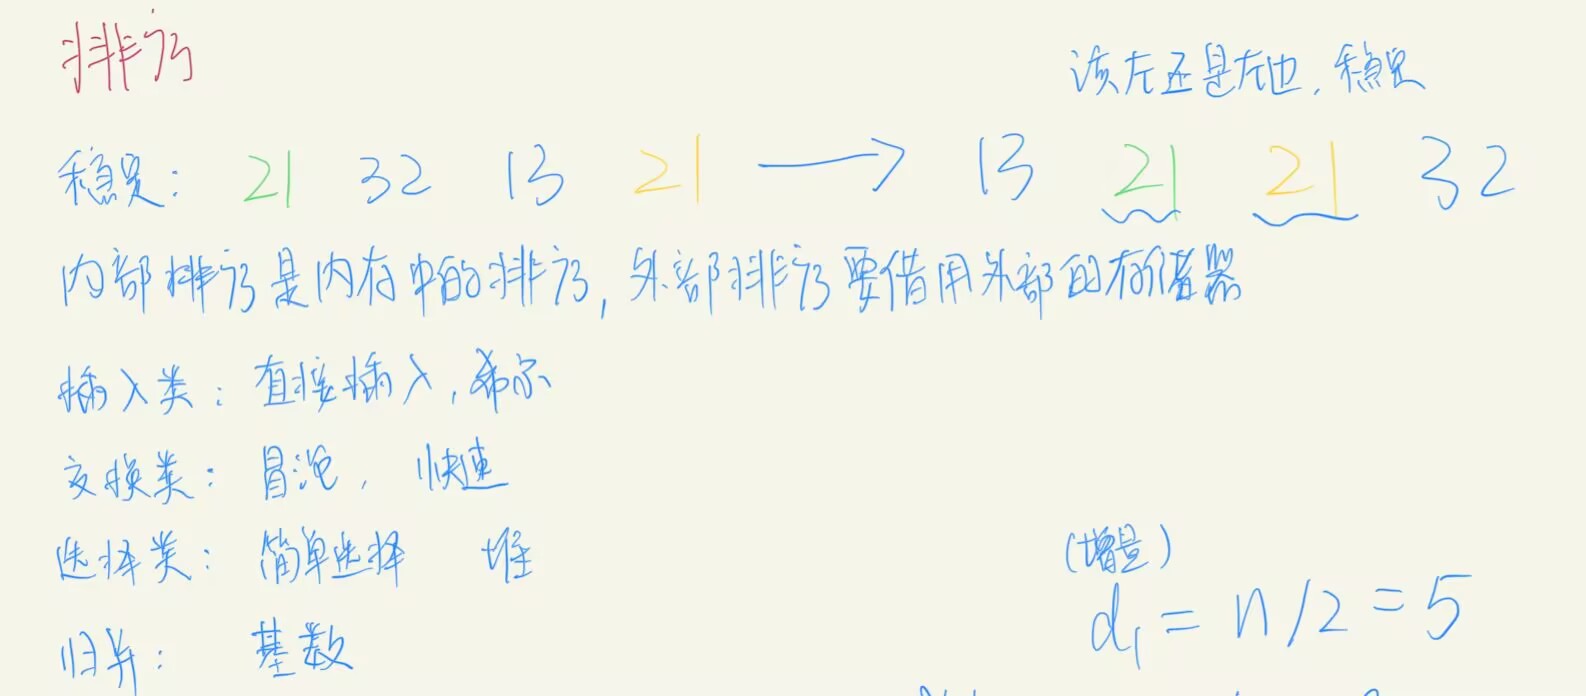 排序
该左还是左边,稳定
稳定: 21 32 13 21 → 13 21 21 32
内部排序是内存中的排序,外部排序要借用外部的存储器
插入类: 直接插入,希尔
交换类: 冒泡, 快速
选择类: 简单选择 堆
(增量)
d₁ = n/2 = 5
归并: 基数